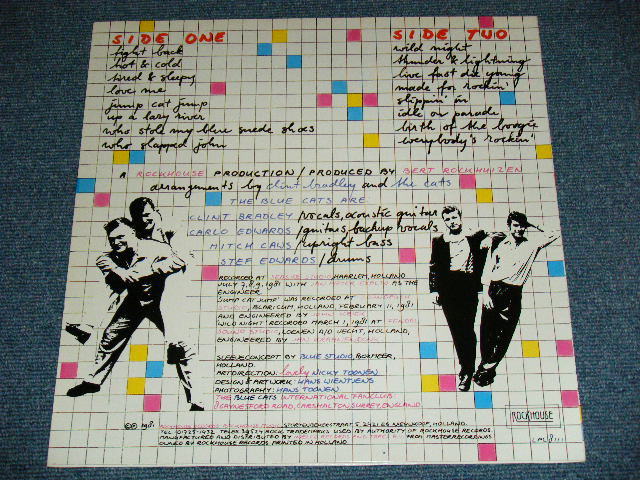 SIDE ONE
fight back
hot & cold
tired & sleepy
love me
jump cat jump
up a lazy river
who stole my blue suede shoes
who slapped john
SIDE TWO
wild night
thunder & lightning
live fast die young
made for rockin'
slippin' in
idle on parade
birth of the boogie
everybody's rockin'
A ROCKHOUSE PRODUCTION / PRODUCED BY BERT ROCKHUIZEN
arrangements by clint bradley and the cats
THE BLUE CATS ARE:
CLINT BRADLEY / vocals, acoustic guitars
CARLO EDWARDS / guitars, backup vocals
MITCH CAWS / upright bass
STEF EDWARDS / drums
RECORDED AT HAARLEM, HOLLAND
JULY 7, 8, 9, 1981 WITH AS THE
ENGINEER.
'JUMP CAT JUMP' WAS RECORDED AT
BLARICUM, HOLLAND, FEBRUARY 11, 1981
AND ENGINEERED BY
WILD NIGHT RECORDED MARCH 1, 1981 AT
SOUND STUDIO, LOENEN A/D VECHT, HOLLAND,
ENGINEERED BY
SLEEVECONCEPT BY BLUE STUDIO, BOXMEER,
HOLLAND
ARTDIRECTION: lovely NICKY TOONEN
DESIGN & ARTWORK: HANS WIENTJENS
PHOTOGRAPHY: HANS TOONEN
THE BLUE CATS INTERNATIONAL FANCLUB
GAYNESFORD ROAD, CARSHALTON SURREY, ENGLAND
©℗ 1981
TRADEMARKS USED BY AUTHORITY OF ROCKHOUSE RECORDS
MANUFACTURED AND DISTRIBUTED BY FROM MASTERRECORDINGS
OWNED BY ROCKHOUSE RECORDS, PRINTED IN HOLLAND
ROCKHOUSE